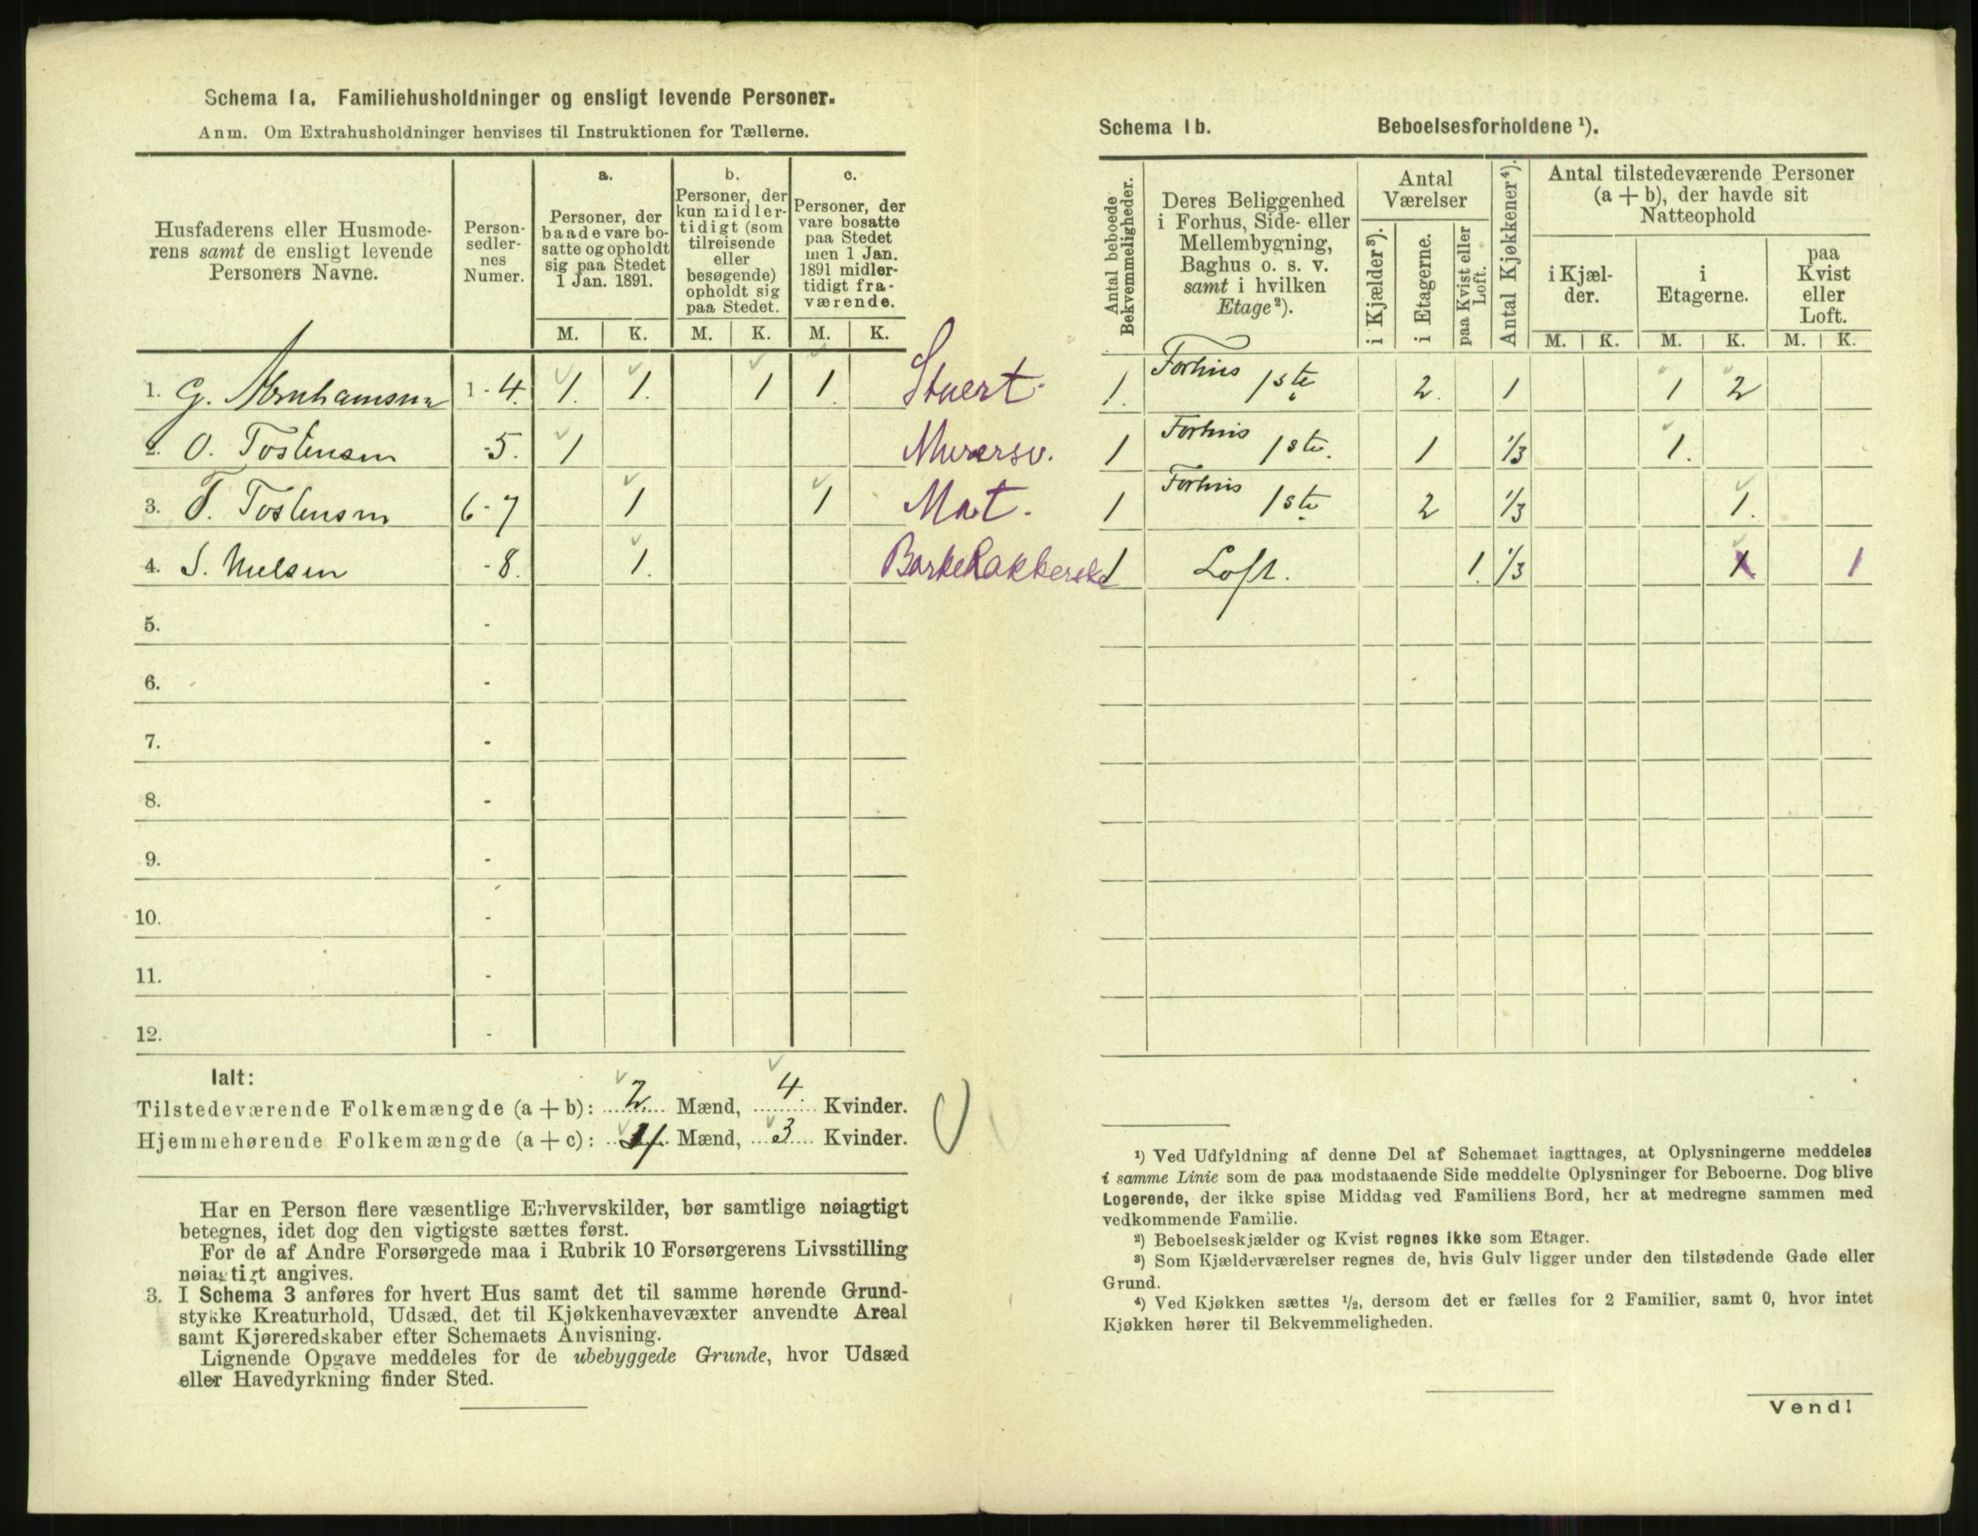 Schema 1a. Familiehusholdninger og ensligt levende Personer.
Anm. Om Extrahusholdninger henvises til Instruktionen for Tællerne.
Husfaderens eller Husmode-
rens samt de ensligt levende
Personers Navne.
Person-
sedler-
nes
Numer.
a.
Personer, der
baade vare bo-
satte og opholdt
sig paa Stedet
1 Jan. 1891.
b.
Personer, der
kun midler-
tidigt (som
tilreisende
eller
besøgende)
opholdt sig
paa Stedet.
c.
Personer, der
vare bosatte
paa Stedet
men 1 Jan.
1891 midler-
tidigt fra-
værende.
M. K. M. K. M. K.
1. G. Abrahamsen 1-4. 1. 1. 1 1. Stuert.
2. O. Tostensen -5. 1 Murersv.
3. T. Tostensen 6-7 1 1 Mat.
4. S. Nielsen -8. 1.
5. -
6. -
7. -
8. -
9. -
10. -
11. -
12. -
Ialt:
Tilstedeværende Folkemængde (a + b): 2 Mænd, 4. Kvinder.
Hjemmehørende Folkemængde (a + c): Mænd, 3 Kvinder.
Har en Person flere væsentlige Erhvervskilder, bør samtlige nøiagtigt
betegnes, idet dog den vigtigste sættes først.
For de af Andre Forsørgede maa i Rubrik 10 Forsørgerens Livsstilling
nøiagtigt angives.
3. I Schema 3 anføres for hvert Hus samt det til samme hørende Grund-
stykke Kreaturhold, Udsæd, det til Kjøkkenhavevæxter anvendte Areal
samt Kjøreredskaber efter Schemaets Anvisning.
Lignende Opgave meddeles for de ubebyggede Grunde, hvor Udsæd
eller Havedyrkning finder Sted.
Schema 1b. Beboelsesforholdene ¹).
Antal beboede
Bekvemmeligheder.
Deres Beliggenhed
i Forhus, Side- eller
Mellembygning,
Baghus o. s. v.
samt i hvilken
Etage²).
Antal
Værelser
i Kjælder³).
i Etagerne.
paa Kvist eller
Loft.
Antal Kjøkkener⁴).
Antal tilstedeværende Personer
(a + b), der havde sit
Natteophold
i Kjæl-
der.
i
Etagerne.
paa
Kvist
eller
Loft.
M. K. M. K. M. K.
1. Forhus 1ste 2. 1 1 2
1 Forhus 1ste. 1 1/3 1.
1 Forhus 1ste 2 1/3 1.
1 Loft. 1. 1/3 1 1
¹) Ved Udfyldning af denne Del af Schemaet iagttages, at Oplysningerne meddeles
i samme Linie som de paa modstaaende Side meddelte Oplysninger for Beboerne. Dog blive
Logerende, der ikke spise Middag ved Familiens Bord, her at medregne sammen med
vedkommende Familie.
²) Beboelseskjælder og Kvist regnes ikke som Etager.
³) Som Kjælderværelser regnes de, hvis Gulv ligger under den tilstødende Gade eller
Grund.
⁴) Ved Kjøkken sættes 1/2, dersom det er fælles for 2 Familier, samt 0, hvor intet
Kjøkken hører til Bekvemmeligheden.
Vend!